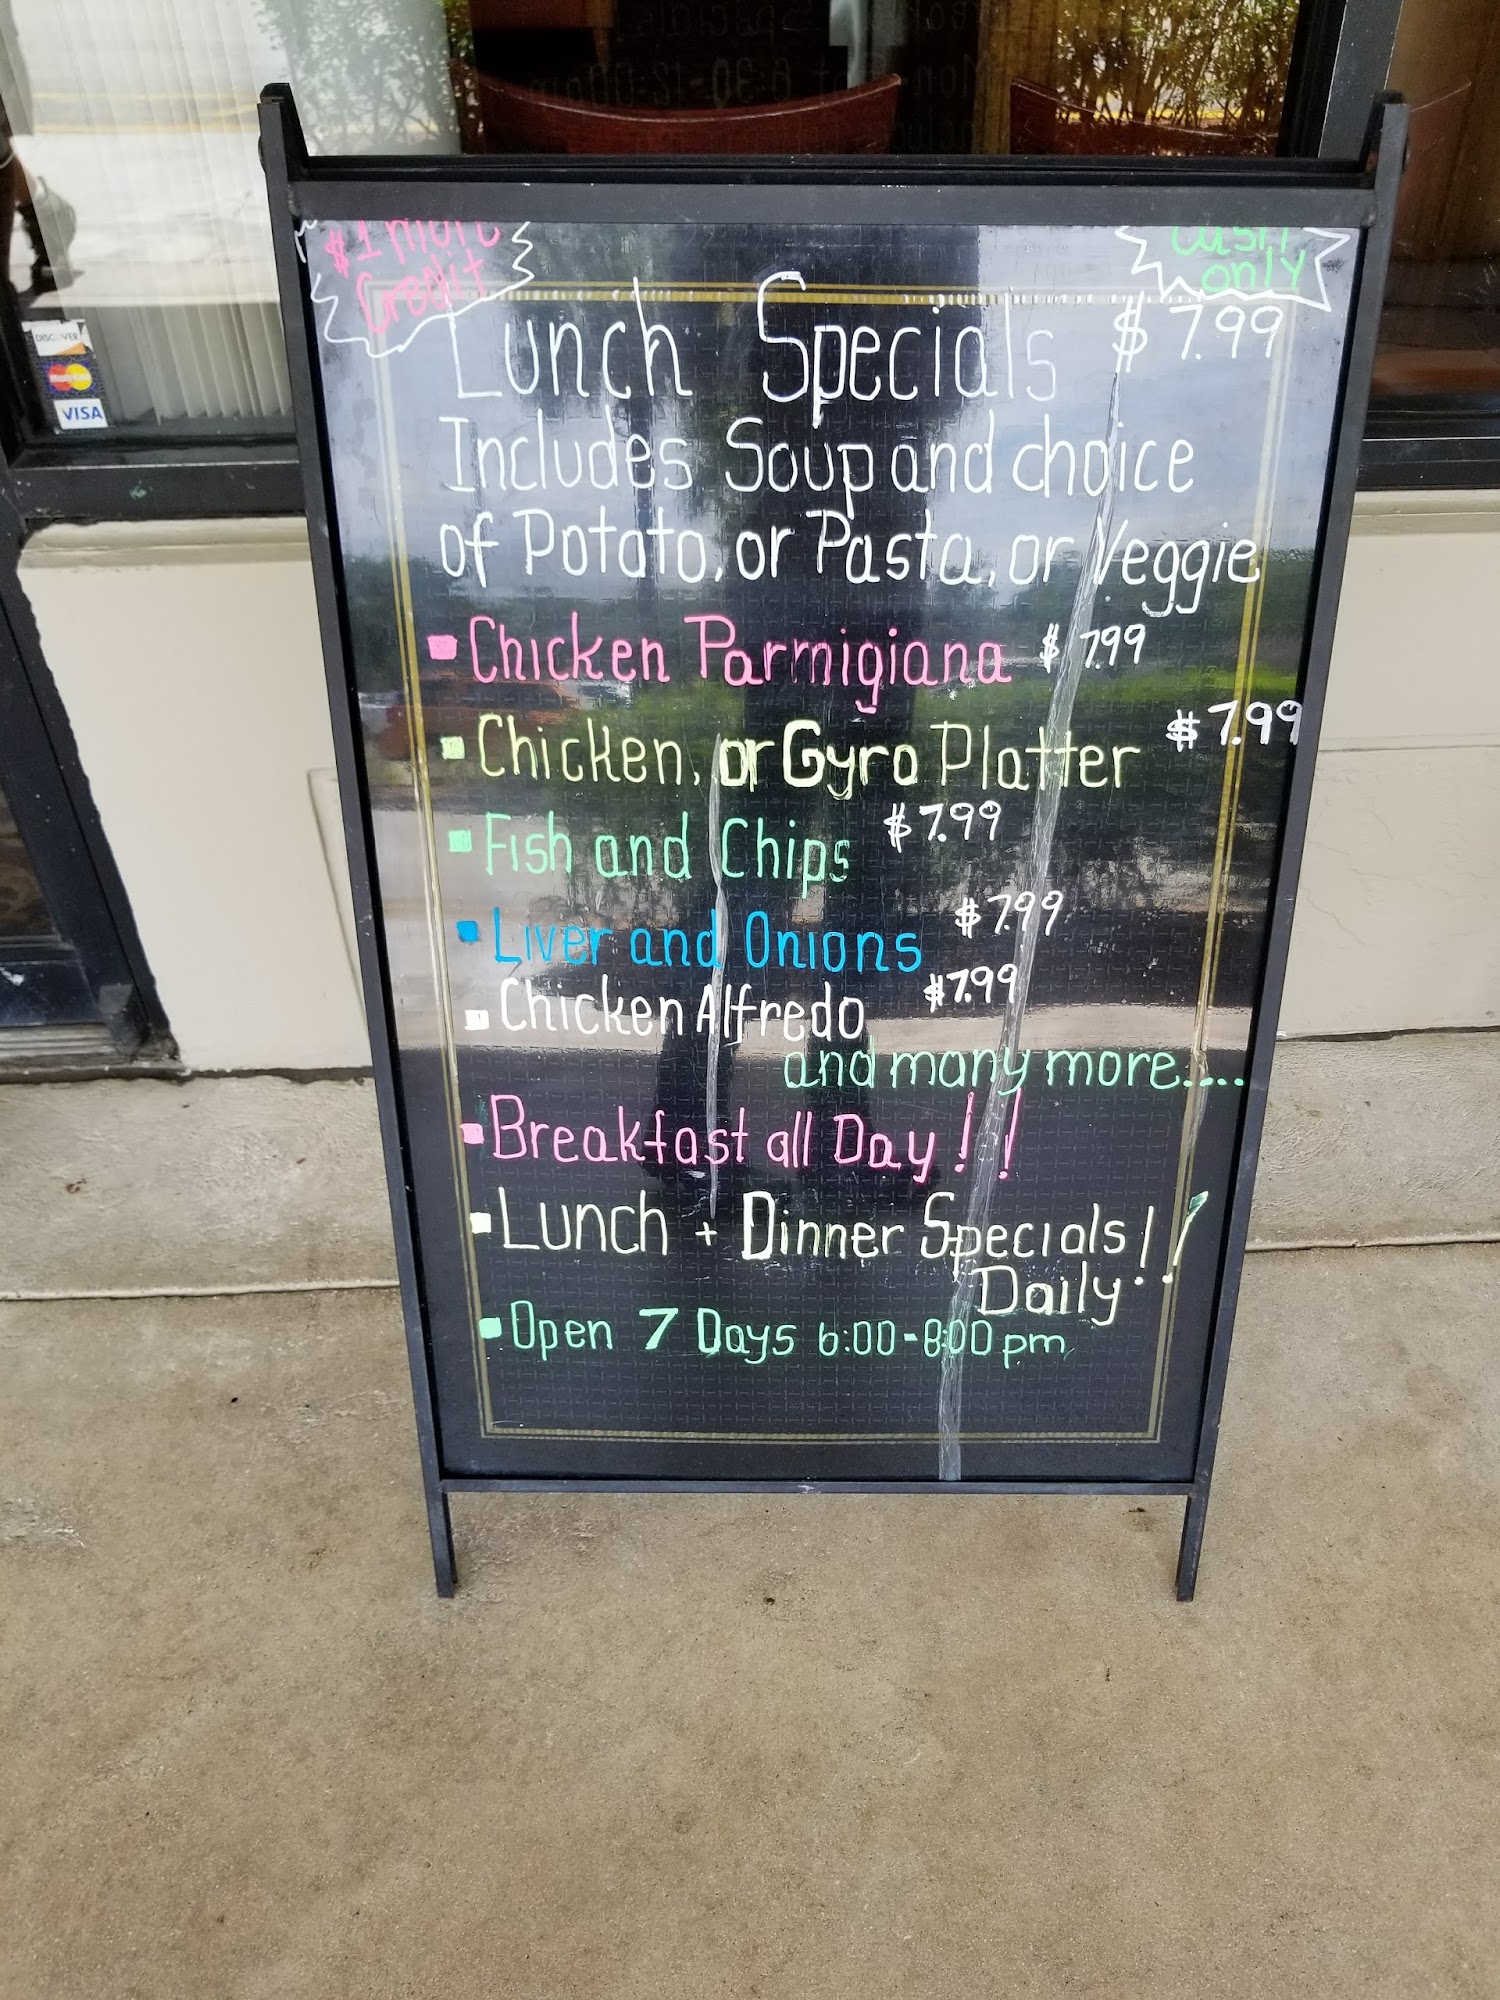 $1 more
Credit
Cash
only
Lunch Specials $7.99
Includes Soup and choice
of Potato, or Pasta, or Veggie
Chicken Parmigiana $7.99
Chicken, or Gyro Platter $7.99
Fish and Chips $7.99
Liver and Onions $7.99
Chicken Alfredo $7.99
and many more....
Breakfast all Day!!
Lunch + Dinner Specials!!
Daily
Open 7 Days 6:00-8:00pm
DISCOVER
VISA